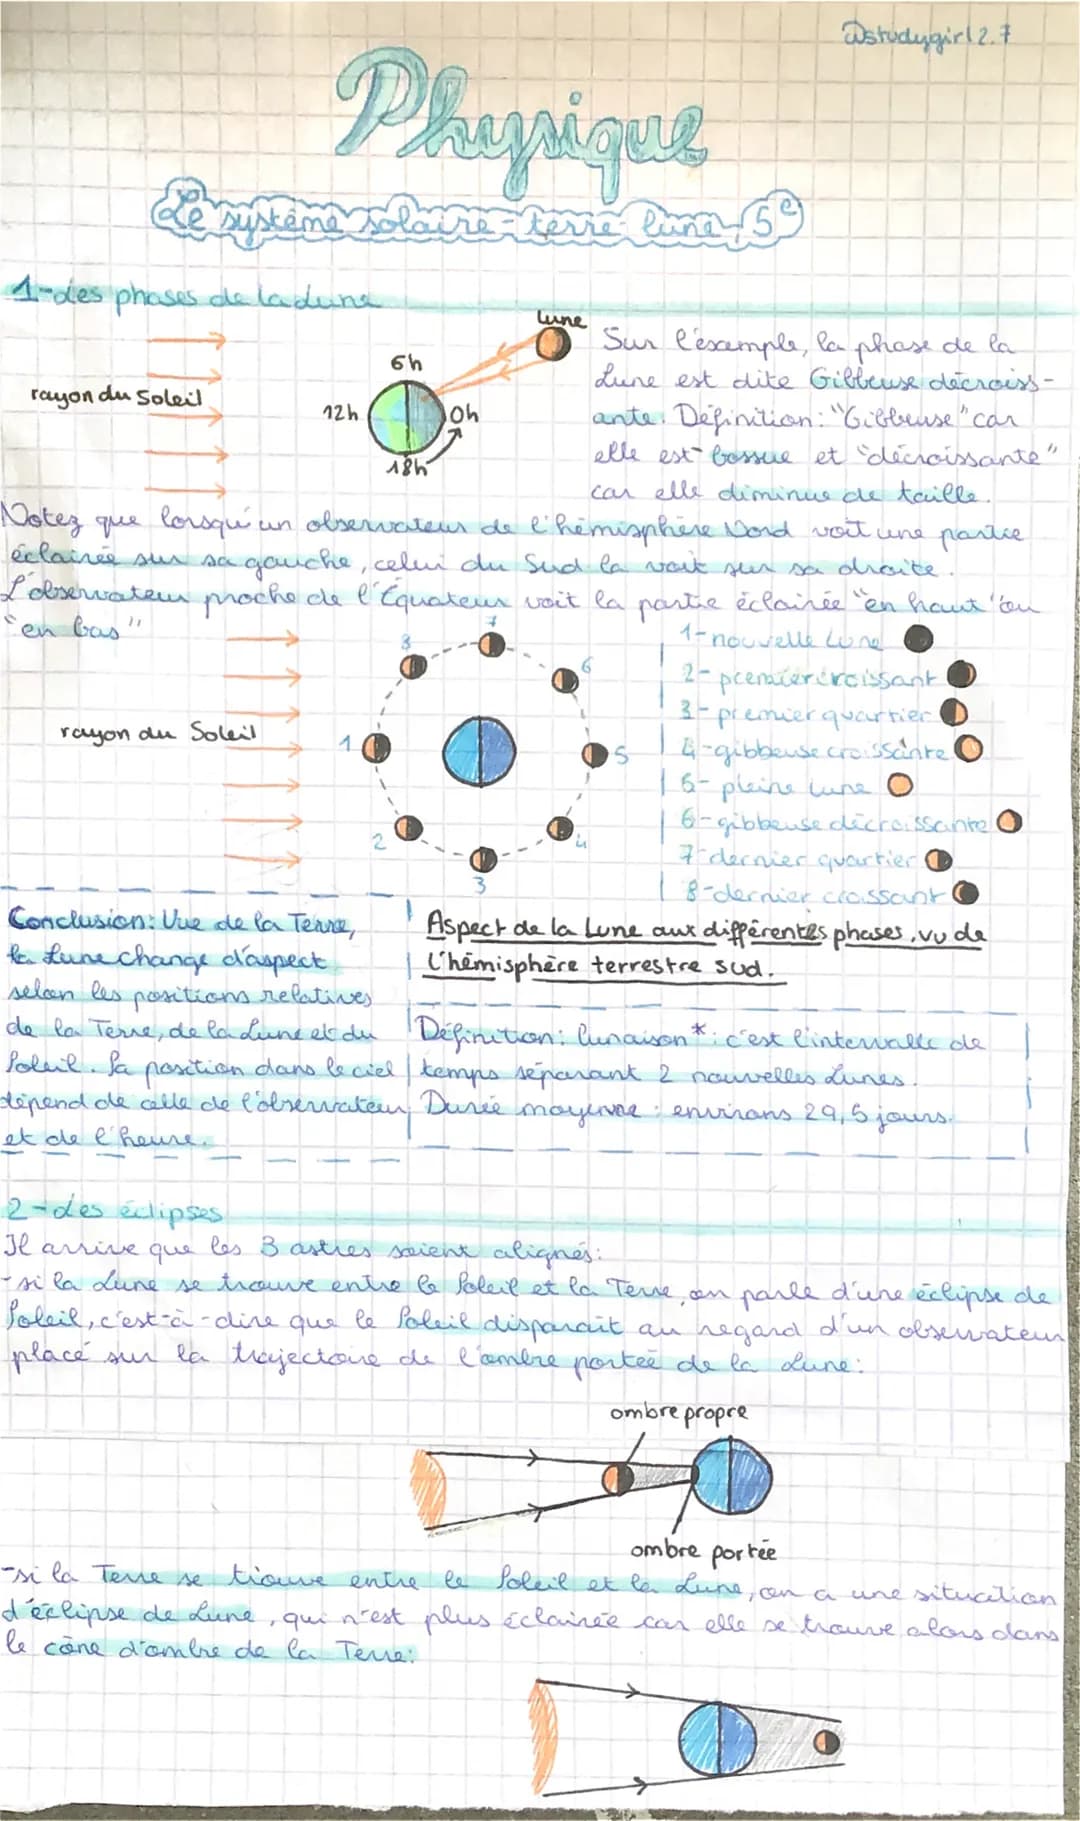 @studygirl2.7
Physique
Le système solaire - terre lune 5e
1-des phases de la Lune
lune
6h
rayon du Soleil
12h
0h
18h
Sur l'exemple, la phase de la
Lune est dite Gibbeuse décroiss-
ante. Définition: "Gibbeuse" car
elle est bossue et "décroissante"
car elle diminue de taille.
Notez que lorsqu'un observateur de l'hémisphère Nord voit une partie
éclairée sur sa gauche, celui du Sud la voit sur sa droite.
L'observateur proche de l'Équateur voit la partie éclairée "en haut" ou
"en bas"
rayon du Soleil
1
2
3
4
5
6
7
8
1-nouvelle Lune
2-premier croissant
3-premier quartier
4-gibbeuse croissante
5-pleine lune
6-gibbeuse décroissante
7-dernier quartier
8-dernier croissant
Conclusion: Vue de la Terre,
la Lune change d'aspect
selon les positions relatives
de la Terre, de la Lune et du
Soleil. Sa position dans le ciel
dépend de celle de l'observateur
et de l'heure.
Aspect de la Lune aux différentes phases, vu de
l'hémisphère terrestre sud.
Définition: lunaison*: c'est l'intervalle de
temps séparant 2 nouvelles Lunes.
Durée moyenne: environs 29,5 jours.
2-des éclipses
Il arrive que les 3 astres soient alignés:
-si la Lune se trouve entre le Soleil et la Terre, on parle d'une éclipse de
Soleil, c'est-à-dire que le Soleil disparait au regard d'un observateur
placé sur la trajectoire de l'ombre portée de la Lune:
ombre propre
ombre portée
-si la Terre se trouve entre le Soleil et la Lune, on a une situation
d'éclipse de Lune, qui n'est plus éclairée car elle se trouve alors dans
le cône d'ombre de la Terre: